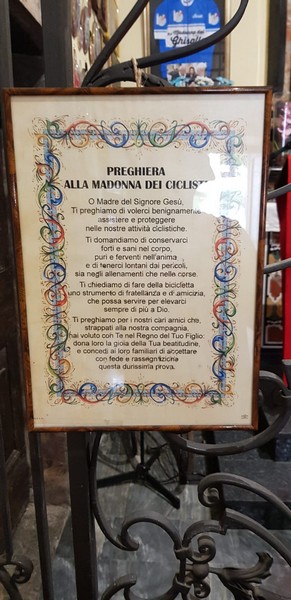 Madonna del
Ghisallo
PREGHIERA
ALLA MADONNA DEI CICLISTI
O Madre del Signore Gesù,
Ti preghiamo di volerci benignamente
assistere e proteggere
nelle nostre attività ciclistiche.
Ti domandiamo di conservarci
forti e sani nel corpo,
puri e ferventi nell'anima
e di tenerci lontani dai pericoli,
sia negli allenamenti che nelle corse.
Ti chiediamo di fare della bicicletta
uno strumento di fratellanza e di amicizia,
che possa servire per elevarci
sempre di più a Dio.
Ti preghiamo per i nostri cari amici che,
strappati alla nostra compagnia,
hai voluto con Te nel Regno del Tuo Figlio:
dona loro la gioia della Tua beatitudine,
e concedi ai loro familiari di accettare
con fede e rassegnazione
questa durissima prova.